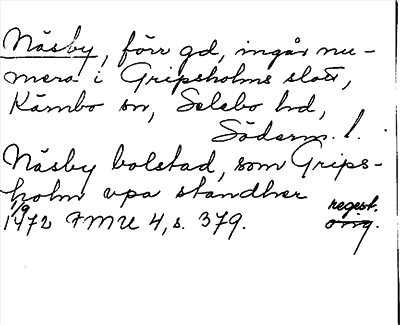 Näsby, förr gd, ingår nu-
mera i Gripsholms slott,
Kärnbo sn, Selebo hd,
Söderm. l.
Näsby bolstad, som Grips-
holm upa standher
1/9 regist.
1472 FMU 4, s. 379. orig.